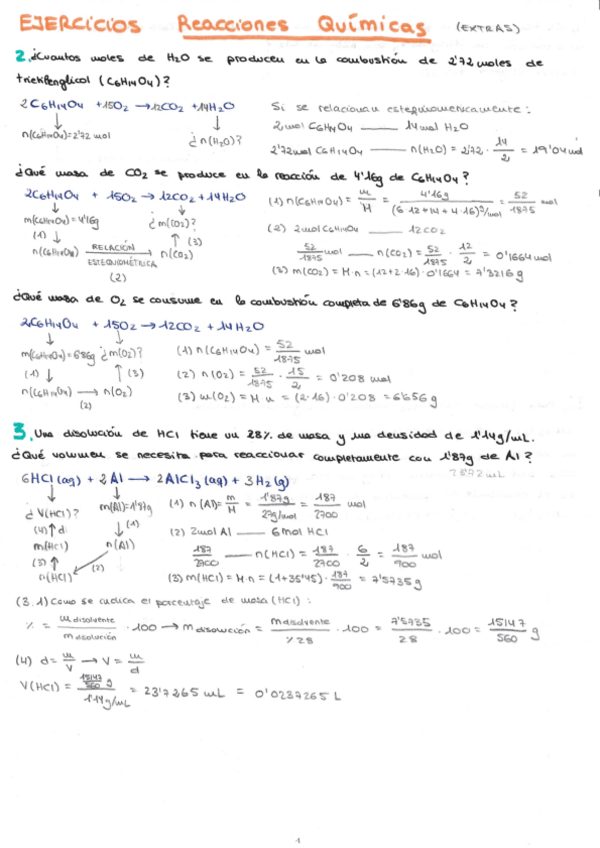 EJERCICIOS Reacciones Químicas (EXTRAS)
2. ¿Cuantos moles de H2O se producen en la combustión de 2'72 moles de
trietilenglicol (C6H14O4)?
2C6H14O4 + 15O2 → 12CO2 + 14H2O
n(C6H14O4)=2'72 mol ¿n(H2O)?
Si se relacionan estequiometricamente:
2mol C6H14O4 —— 14mol H2O
2'72mol C6H14O4 —— n(H2O) = 2'72 · 14/2 = 19'04 mol
¿Qué masa de CO2 se produce en la reacción de 4'16g de C6H14O4?
2C6H14O4 + 15O2 → 12CO2 + 14H2O
m(C6H14O4)=4'16g ¿m(CO2)?
(1) ↓ ↑ (3)
n(C6H14O4) RELACIÓN ESTEQUIOMÉTRICA → n(CO2)
(2)
(1) n(C6H14O4) = m/M = 4'16g/(6·12+14+4·16)g/mol = 52/1875 mol
(2) 2mol C6H14O4 —— 12CO2
52/1875 mol —— n(CO2) = 52/1875 · 12/2 = 0'1664 mol
(3) m(CO2) = M·n = (12+2·16)·0'1664 = 7'3216g
¿Qué masa de O2 se consume en la combustión completa de 6'86g de C6H14O4?
2C6H14O4 + 15O2 → 12CO2 + 14H2O
m(C6H14O4)=6'86g ¿m(O2)?
(1) ↓ ↑ (3)
n(C6H14O4) → n(O2)
(2)
(1) n(C6H14O4) = 52/1875 mol
(2) n(O2) = 52/1875 · 15/2 = 0'208 mol
(3) m(O2) = M n = (2·16)·0'208 = 6'656 g
3. Una disolución de HCl tiene un 28% de masa y una densidad de 1'14g/mL.
¿Qué volumen se necesita para reaccionar completamente con 1'87g de Al?
6HCl (aq) + 2Al → 2AlCl3 (aq) + 3H2 (g)
¿V(HCl)? m(Al)=1'87g
(4)↑ d ↓ (1)
m(HCl) n(Al)
(3)↑ (2)
n(HCl)
(1) n(Al) = m/M = 1'87g/27g/mol = 187/2700 mol
(2) 2mol Al —— 6mol HCl
187/2700 —— n(HCl) = 187/2700 · 6/2 = 187/900 mol
(3) m(HCl) = M·n = (1+35'45) · 187/900 = 7'5735g
(3.1) Como se cuelca el porcentaje de masa (HCl):
% = m disolvente/m disolución · 100 → m disolución = m disolvente/% 28 · 100 = 7'5735/28 · 100 = 15147/560 g
(4) d = m/V → V = m/d
V(HCl) = 15147/560 g/1'14g/mL = 23'7265 mL = 0'0237265 L
1